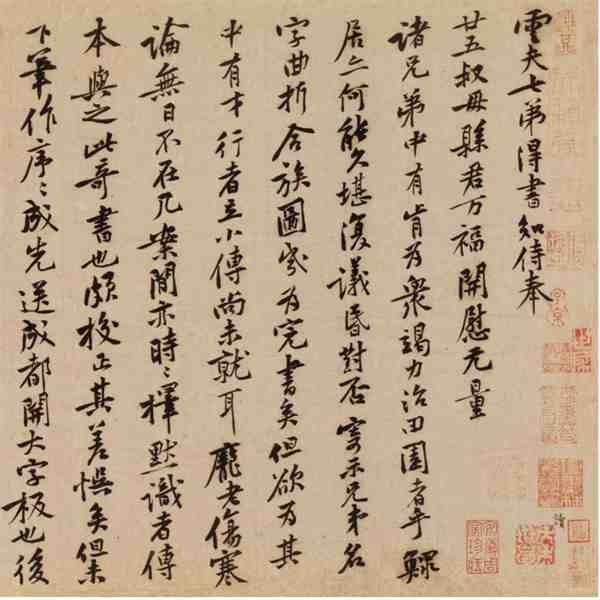 雲夫七弟得書知侍奉
廿五叔母縣君万福開慰无量
諸兄弟中有肯為衆竭力治田園者乎鰥
居亦何能久堪復議昏對否寄示兄弟名
字曲折合族圖幾為完書矣但欲為其
中有才行者立小傳尚未就耳龐老傷寒
論無日不在几案間亦時〻擇默識者傳
本與之此奇書也頗校正其差悞矣但未
下筆作序〻成先送成都開大字板也後